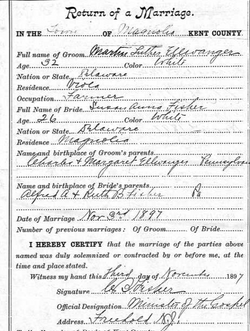 Return of a Marriage.
IN THE Town OF Magnolia KENT COUNTY
Full name of Groom Martin Luther Ellwanger
Age 32 Color White
Nation or State Delaware
Residence Viola
Occupation Farmer
Full Name of Bride Susan Anna Fisher
Age 26 Color White
Nation or State Delaware
Residence Magnolia
Name and birthplace of Groom's parents
Charles & Margaret Ellwanger Pennsylvania
Name and birthplace of Bride's parents
Alfred & Ruth Fisher Pa
Date of Marriage Nov 3rd 1897
Number of previous marriages: Of Groom Of Bride
I HEREBY CERTIFY that the marriage of the parties above
named was duly solemnized or contracted by or before me, at the
time and place stated.
Witness my hand this third day of November 1897
Signature
Official Designation Minister of the Gospel
Address Freehold N.J.